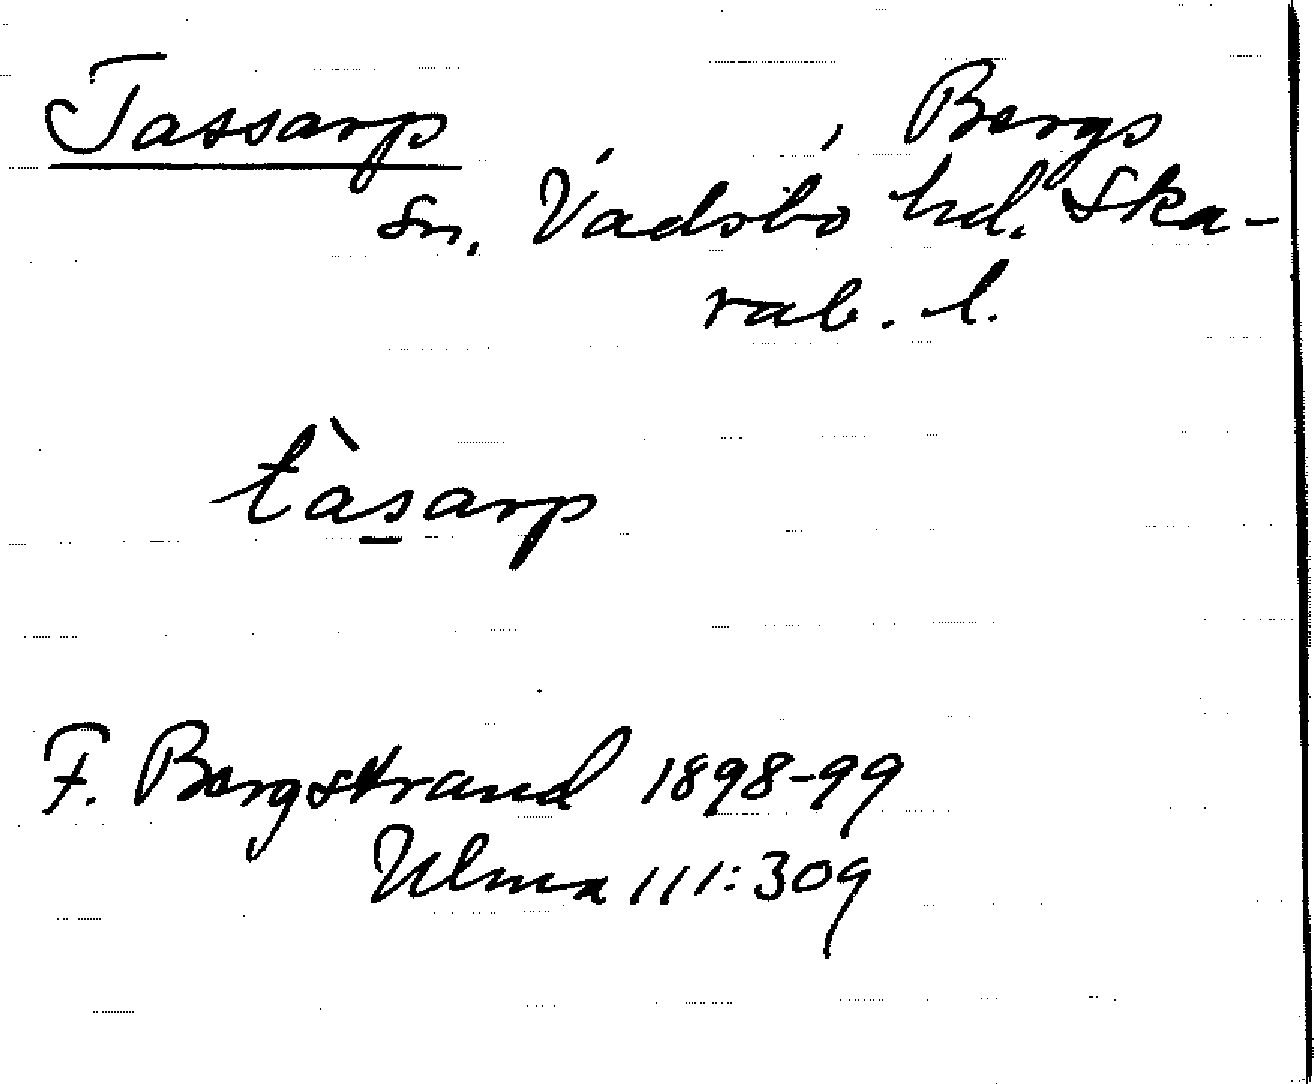 Tassarp , , Bergs
sn. Vadsbo hd. Ska-
rab. l.
tàsarp
F. Bergstrand 1898-99
Ulma 111:309